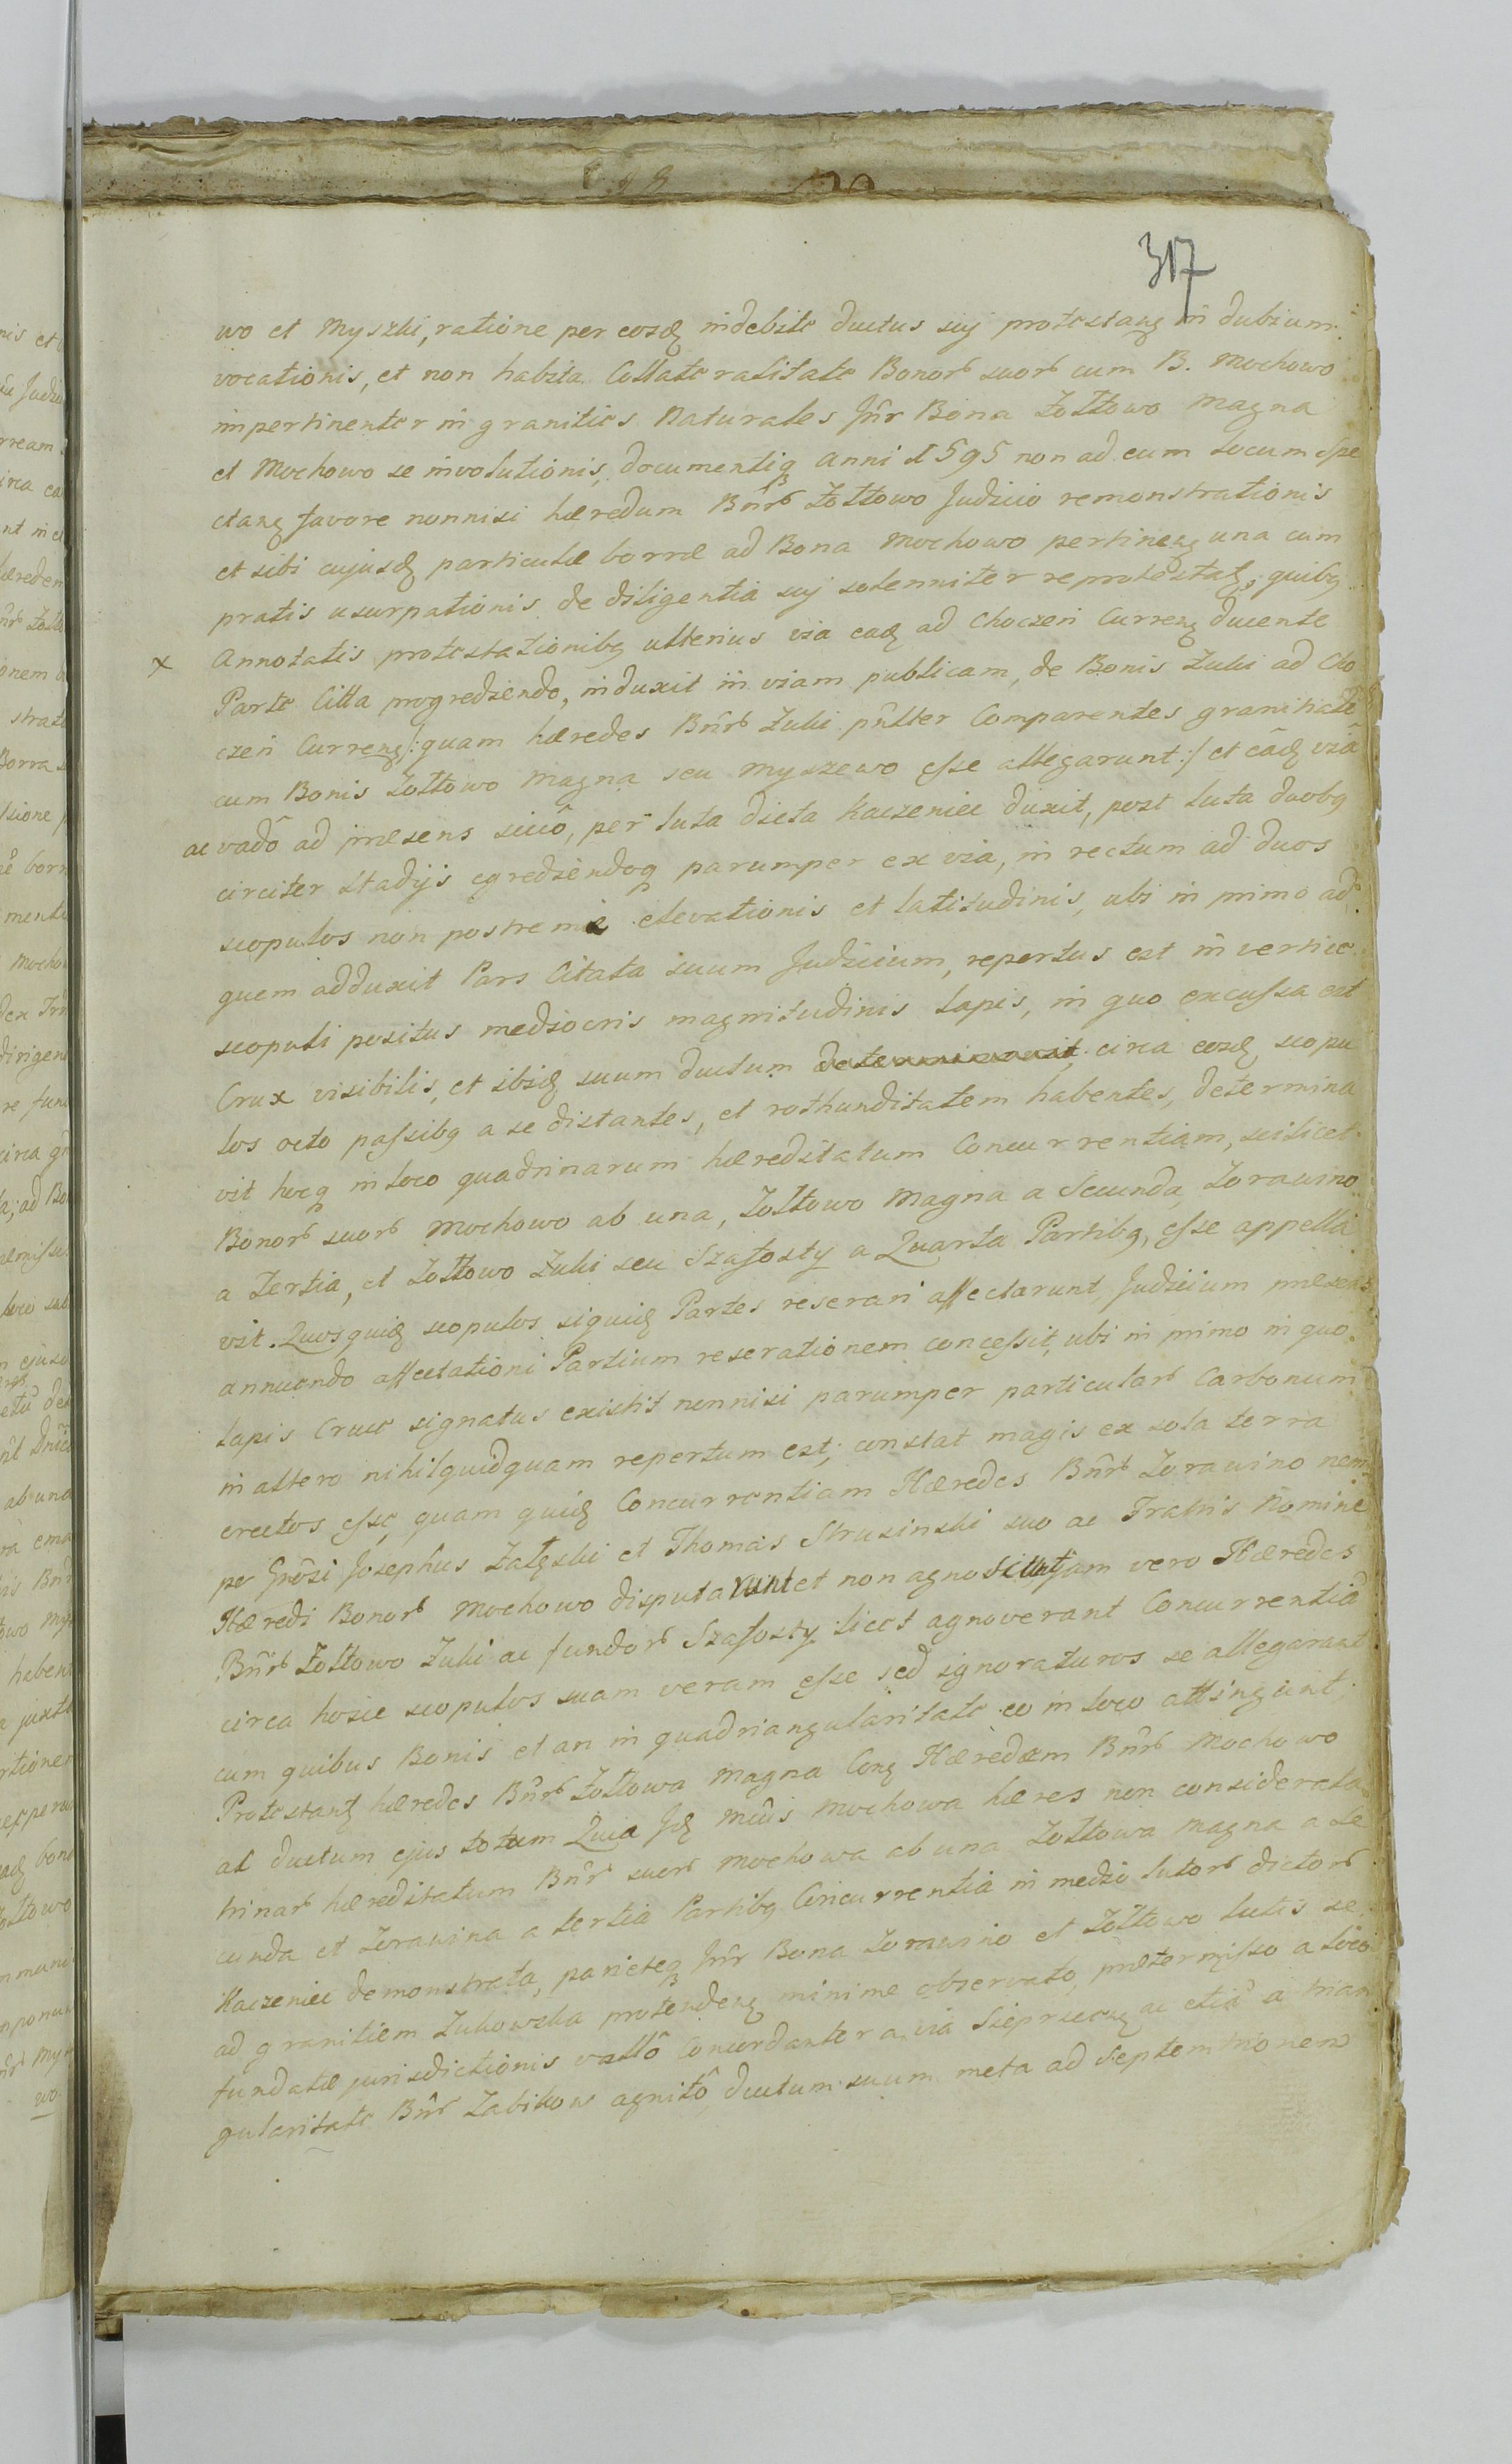 317
wo et Myszki, ratione per eosdꝫ indebite ductus suj protestanꝫ in dubium
vocationis, et non habita Collateralitate Bonorꝫ suorꝫ cum B. Mochowo
impertinenter in granities Naturales Inr̄ Bona Żołtowo Magna
et Mochowo se involutionis, documentiqꝫ Anni 1595 non ad eum locum Spe
ctanꝫ favore nonnisi hæredum Bnr̄ꝫ Żołtowo Judicio remonstrationis
et sibi cujusdꝫ particulæ borræ ad Bona Mochowo pertinenꝫ una cum
pratis usurpationis de diligentia suj solenniter reprotestatꝫ; quibꝫ
x Annotatis protestationibꝫ ulterius via eadꝫ ad Choczen Currenꝫ ducente
Parte Citta progrediendo, induxit in viam publicam, de Bonis Żuki ad Cho
czen Currenꝫ /: quam hæredes Bnr̄ꝫ Żuki pn̄lter Comparentes granitialē
cum Bonis Żołtowo Magna seu Myszewo esse allegarunt :/ et eādꝫ viā
ac vadō ad præsens siccō, per luta dicta Kaczeniec duxit, post luta duobꝫ
circiter stadijs egrediendoqꝫ parumper ex via, in rectum ad duos
scopulos non postremæ elevationis et latitudinis, ubi in primo ad
quem adduxit Pars Citata suum Judicium, repertus est in vertice
scopuli positus mediocris magnitudinis lapis, in quo excussa est
Crux visibilis, et ibidꝫ suum ductum determinavit, circa eosdꝫ scopu
los octo passibꝫ a se distantes, et rothunditatem habentes, determina
vit hocqꝫ in loco quadrinarum hæreditatum Concurrentiam, scilicet
Bonorꝫ suorꝫ Mochowo ab una, Żołtowo Magna a Secunda, Żorawino
a Tertia, et Żołtowo Żuki seu Szafosty a Quarta Partibꝫ, esse appella
vit. Quosquidꝫ scopulos siquidꝫ Partes reserari affectarunt, Judicium præsens
annuendo affectationi Partium reserationem concessit, ubi in primo in quo
lapis Cruce signatus existit nonnisi parumper particularꝫ Carbonum
in altero nihilquidquam repertum est; constat magis ex sola terra
erectos esse, quam quidꝫ Concurrentiam Hæredes Bnr̄ꝫ Żorawino nem
pe Grōsi Josephus Załęski et Thomas Strusinski suo ac Fratris Nomine
Hæredi Bonorꝫ Mochowo disputarunt et non agnoscunt, jam vero Hæredes
Bnr̄ꝫ Żołtowo Żuki ac fundorꝫ Szafosty licet agnoverant Concurrentiā
circa hosce scopulos suam veram esse sed ignoraturos se allegarant
cum quibus Bonis et an in quadriangularitate eo in loco attingunt;
Protestantꝫ hæredes Bnr̄ꝫ Żołtowa Magna Conꝫ Hæredem Bnr̄ꝫ Mochowo
at ductum ejus totum Quia Idꝫ Mḡis Mochowa hæres non considerata
trinarꝫ hæreditatum Bnr̄ꝫ suorꝫ Mochowa ab una Żołtowa Magna a Se
cunda et Żorawina a tertia Partibꝫ Concurrentia in medio lutorꝫ dictorꝫ
Kaczeniec demonstrata, parieteqꝫ Inr̄ Bona Żorawino et Żołtowo lutis se
ad granitiem Żukowska protendenꝫ minime observato, prætermisso a loco
fundatæ jurisdictionis vallō Concordanter a via Sieprcenꝫ ac etiā a trian
gularitate Bnr̄ꝫ Żabikow agnitō ductum suum meta ad Septemtrionem